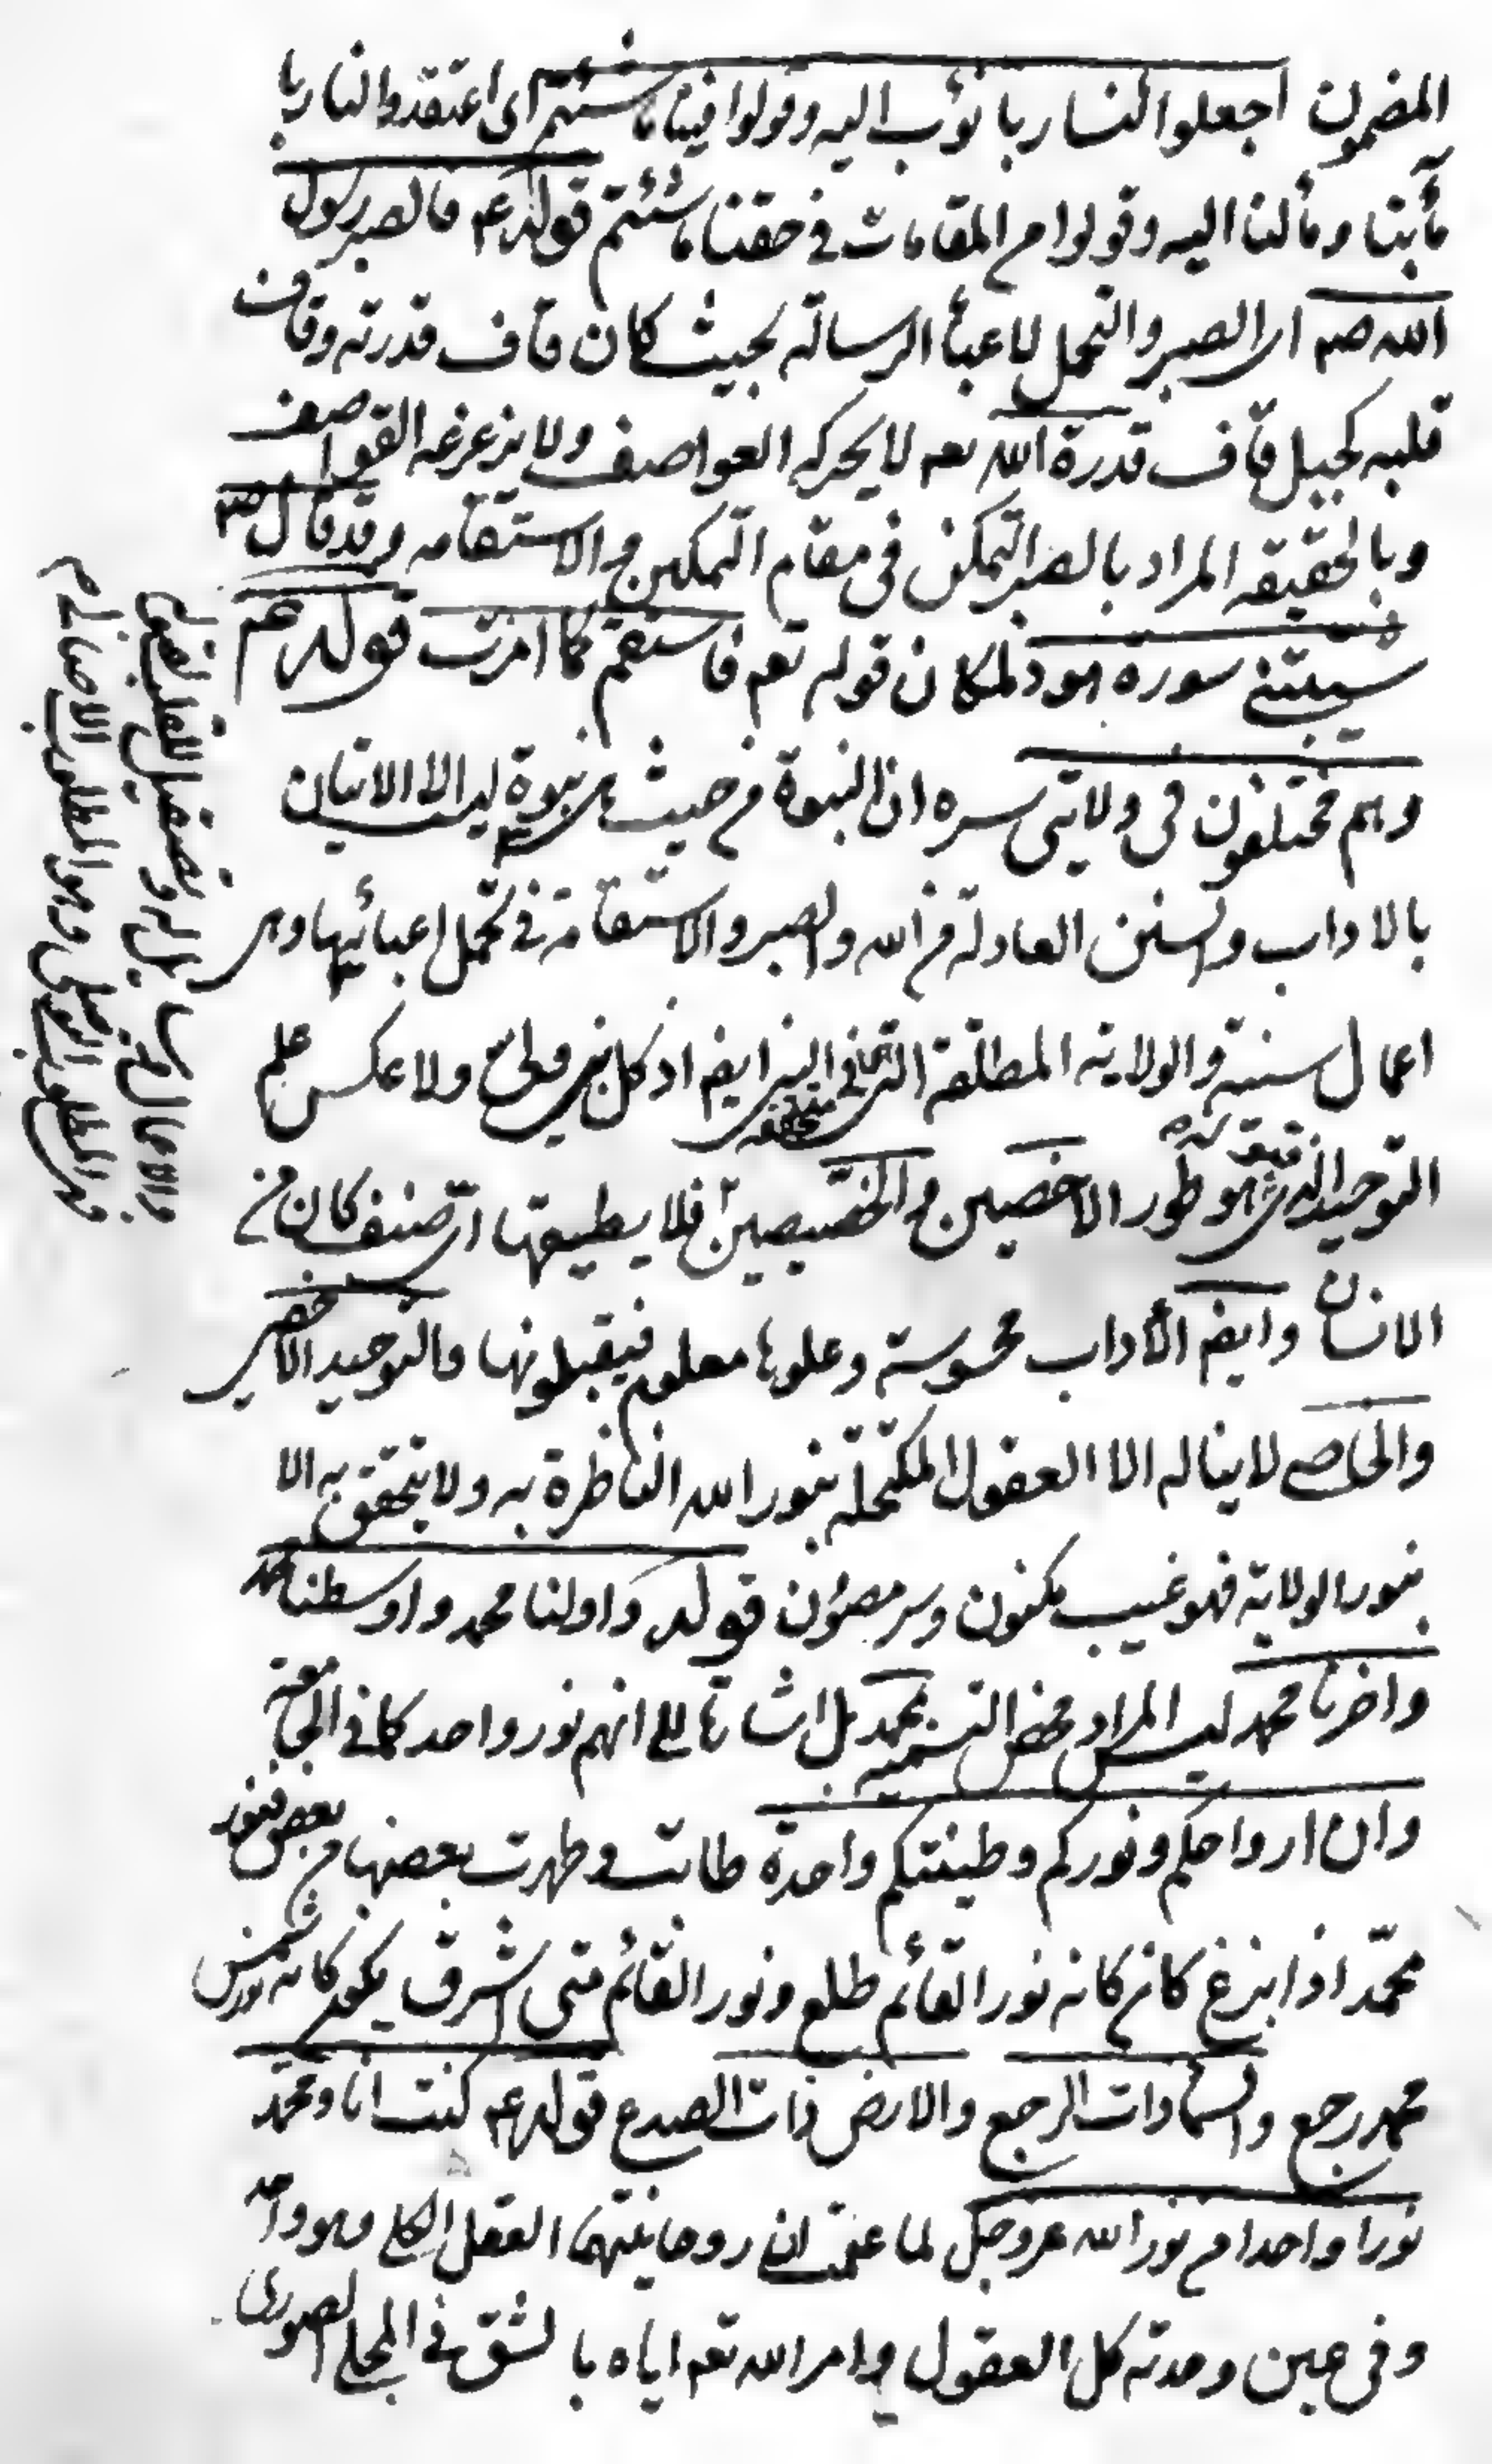 المضمون اجعلوا لنا ربا نؤب اليه وقولوا فينا ما شئتم اى اعتقدوا لنا ربا
مأبنا ومألنا اليه وقولوا من المقامات في حقنا ما شئتم قوله عم فالصبر رسول
الله صم اى الصبر والتحمل لاعبأ الرسالة بحيث كان قاف قدرته وقاف
قلبه كجبل قاف قدرة الله تعم لا يحركه العواصف ولا يزعزعه القواصف
وبالحقيقه المراد بالصبر التمكن فى مقام التمكين والاستقامه وقد قال صم
شيبتنى سورة هود لمكان قوله تعم فاستقم كما امرت قوله عم
وهم مختلفون فى ولايتى سره ان النبوة من حيث هى نبوة ليست الا الاتيان
بالاداب والسنن العادلة من الله والصبر والاستقامة في تحمل اعبائها وهى
اعمال سنية والولاية المطلقة التى فى النبى ايضا متحققه اذ كل نبى ولى ولا عكس علم
التوحيد الذى هو طور الاخصين والخصيصين فلا يطيقها اى صنف كان من
الانسان وايضا الأداب محسوسة وعلومها معلوم فيقبلونها والتوحيد الاخصى
والخاصى لا يناله الا العقول المكتحلة بنور الله الناظرة به ولا يتحقق به الا
بنور الولاية فهو غيب مكنون وسر مصؤن قوله واولنا محمد واوسطنا محمد
واخرنا محمد ليس المراد محض التسمية بمحمد بل اشارة الى انهم نور واحد كما في الجامعة
وان ارواحكم ونوركم وطينتكم واحدة طابت وطهرت بعضها من بعض فنور
محمّد اذا بزغ كان كانه نور القائم طلع ونور القائم متى اشرق يكون كانه نور شمس
محمد رجع والسماء ذات الرجع والارض ذات الصدع قوله عم كنت انا ومحمّد
نورا واحدا من نور الله عزوجل لما علمت ان روحانيتهما العقل الكلى وهو واحد
وفى عين وحدته كل العقول وامر الله تعم اياه بالشق في المجلى الصورى